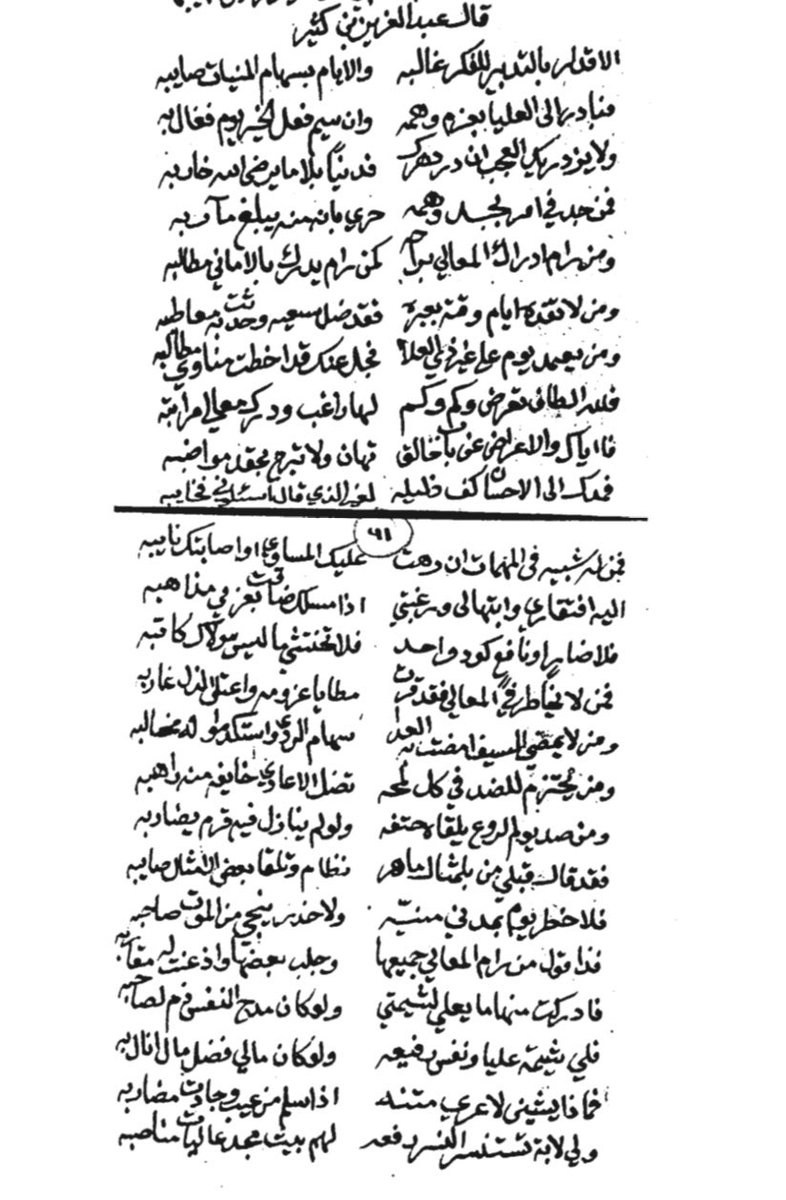 قال عبد العزيز بن كثير
الاقدار بالتدبير للفكر غالبه والايام بسهام المنيات صايبه
فبادر الى العليا بعزم وهمه وان سيم فعل الخير يوم فعال به
ولا يزدريك العجب ان در دهرك فدنيا بلا ما يرضي الله خاربه
فمن جد في امر بجد وهمه حري بانه منه يبلغ مآربه
ومن رام ادراك المعالي براحه كمن رام يدرك بالاماني مطالبه
ومن لا تفده ايام وقته بعبره فقد ضل سعيه وحدثت به معاطبه
ومن يعتمد يوم على غير ذي العلا فجل عنك قد اخطت مناوي مطالبه
فلله الطاف تعرض وكم وكم لها راغب ودرك معالي مراتبه
فاياك والاعراض عن باب خالق تهان ولا تبرح بحقد مواضبه
فمدك الى الاحسان كف ذليله لغير الذي قال اسئلوني فخايبه
٩١
فمن له شبيه في المهمات ان دهت عليك المساوي او اصابتك نايبه
اليه افتقاري وابتهالي ورغبتي اذا مسلك ضاقت بعزمي مذاهبه
فلا ضاير او نافع كود واحد فلا تختشي ما ليس مولاك كاتبه
فمن لا يخاطر في المعالي فقد قرت مطايا عزومه واعتلى الذل غاربه
ومن لا يمضي السيف امضت به العدا سهام الردى واستكدوا له مخالبه
ومن يحتزم للضد في كل لمحه تضل الاعادي خايفه منه راهبه
ومن صد يوم الروع يلقاه حتفه ولو لم ينازل فيه قرم يضاربه
فقد قال قبلي من بالامثال ماهر نظام وتلقا بعض الامثال صايبه
فلا خطر يوم بمدني منيه ولا حذر ينجي من الموت صاحبه
فذا قول من رام المعالي جميعها وجلب بعضها واذعنت له
فادركت منها ما يعلي لشيمتي ولو كان مدح النفس ذم لصاحبه
فلي شيمة عليا ونفس رفيعه ولو كان مالي فضل مال انال به
فما فايتني لا عري متنه اذا سلم من عيب وجادت مضاربه
ولي لابة رفعه لهم بيت مجد عاليات مناصبه